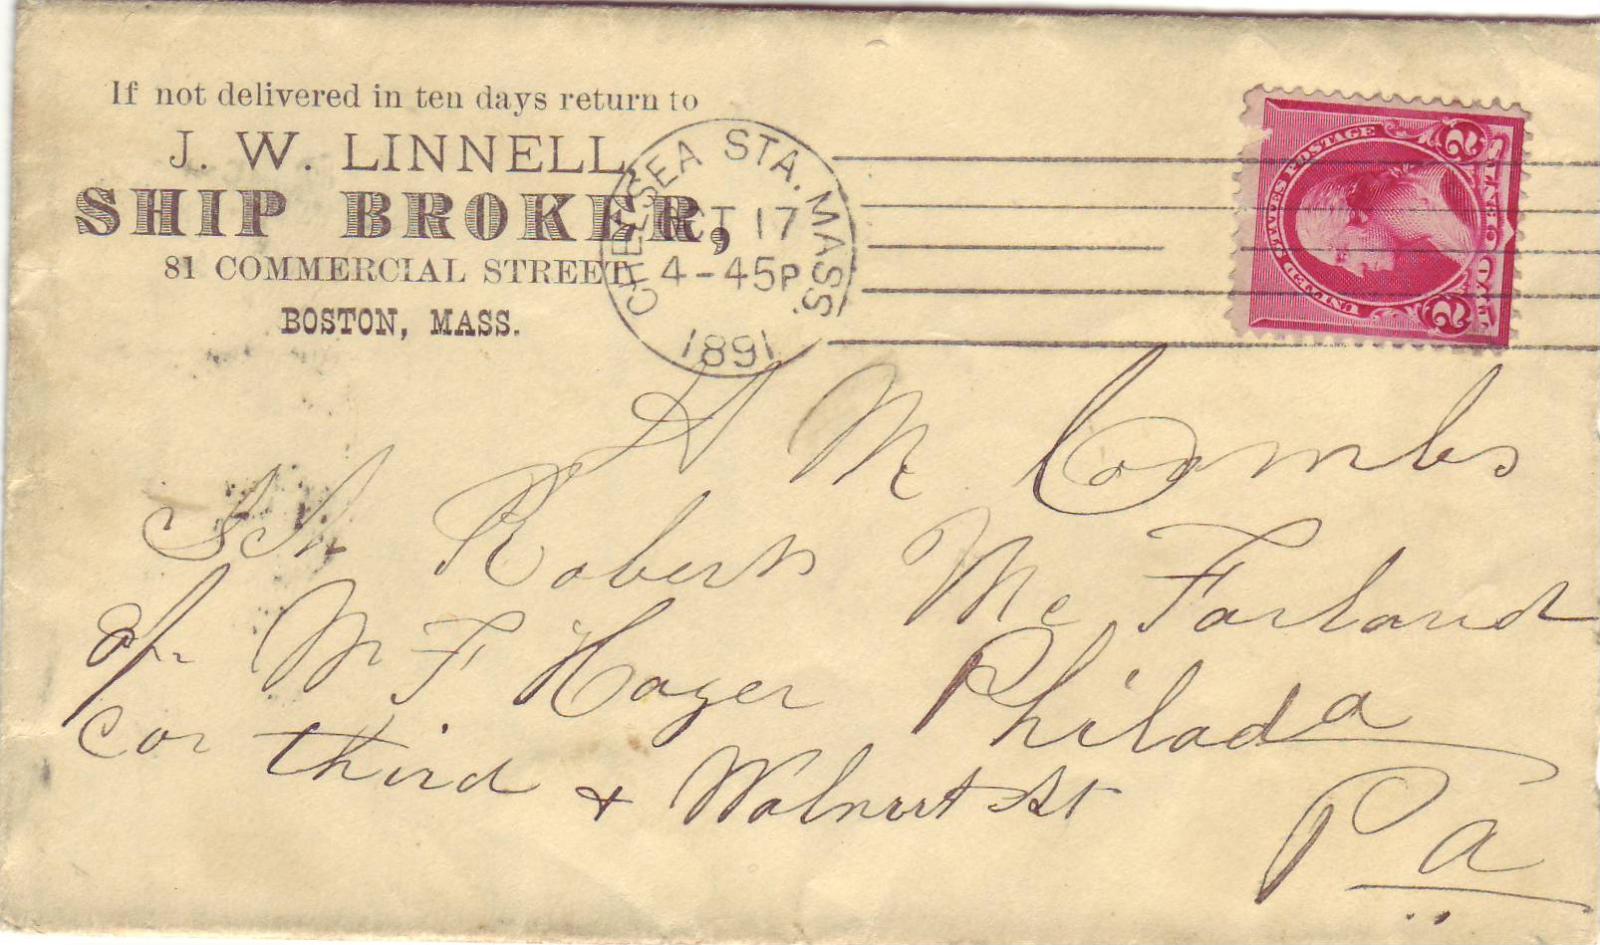 If not delivered in ten days return to
J. W. LINNELL,
SHIP BROKER,
81 COMMERCIAL STREET,
BOSTON, MASS.
CHELSEA STA. MASS.
OCT 17
4-45P
1891
UNITED STATES POSTAGE
2 2
A M Coombs
Robert Mc Farland
M F Hager Philada
Cor third + Walnut St
Pa